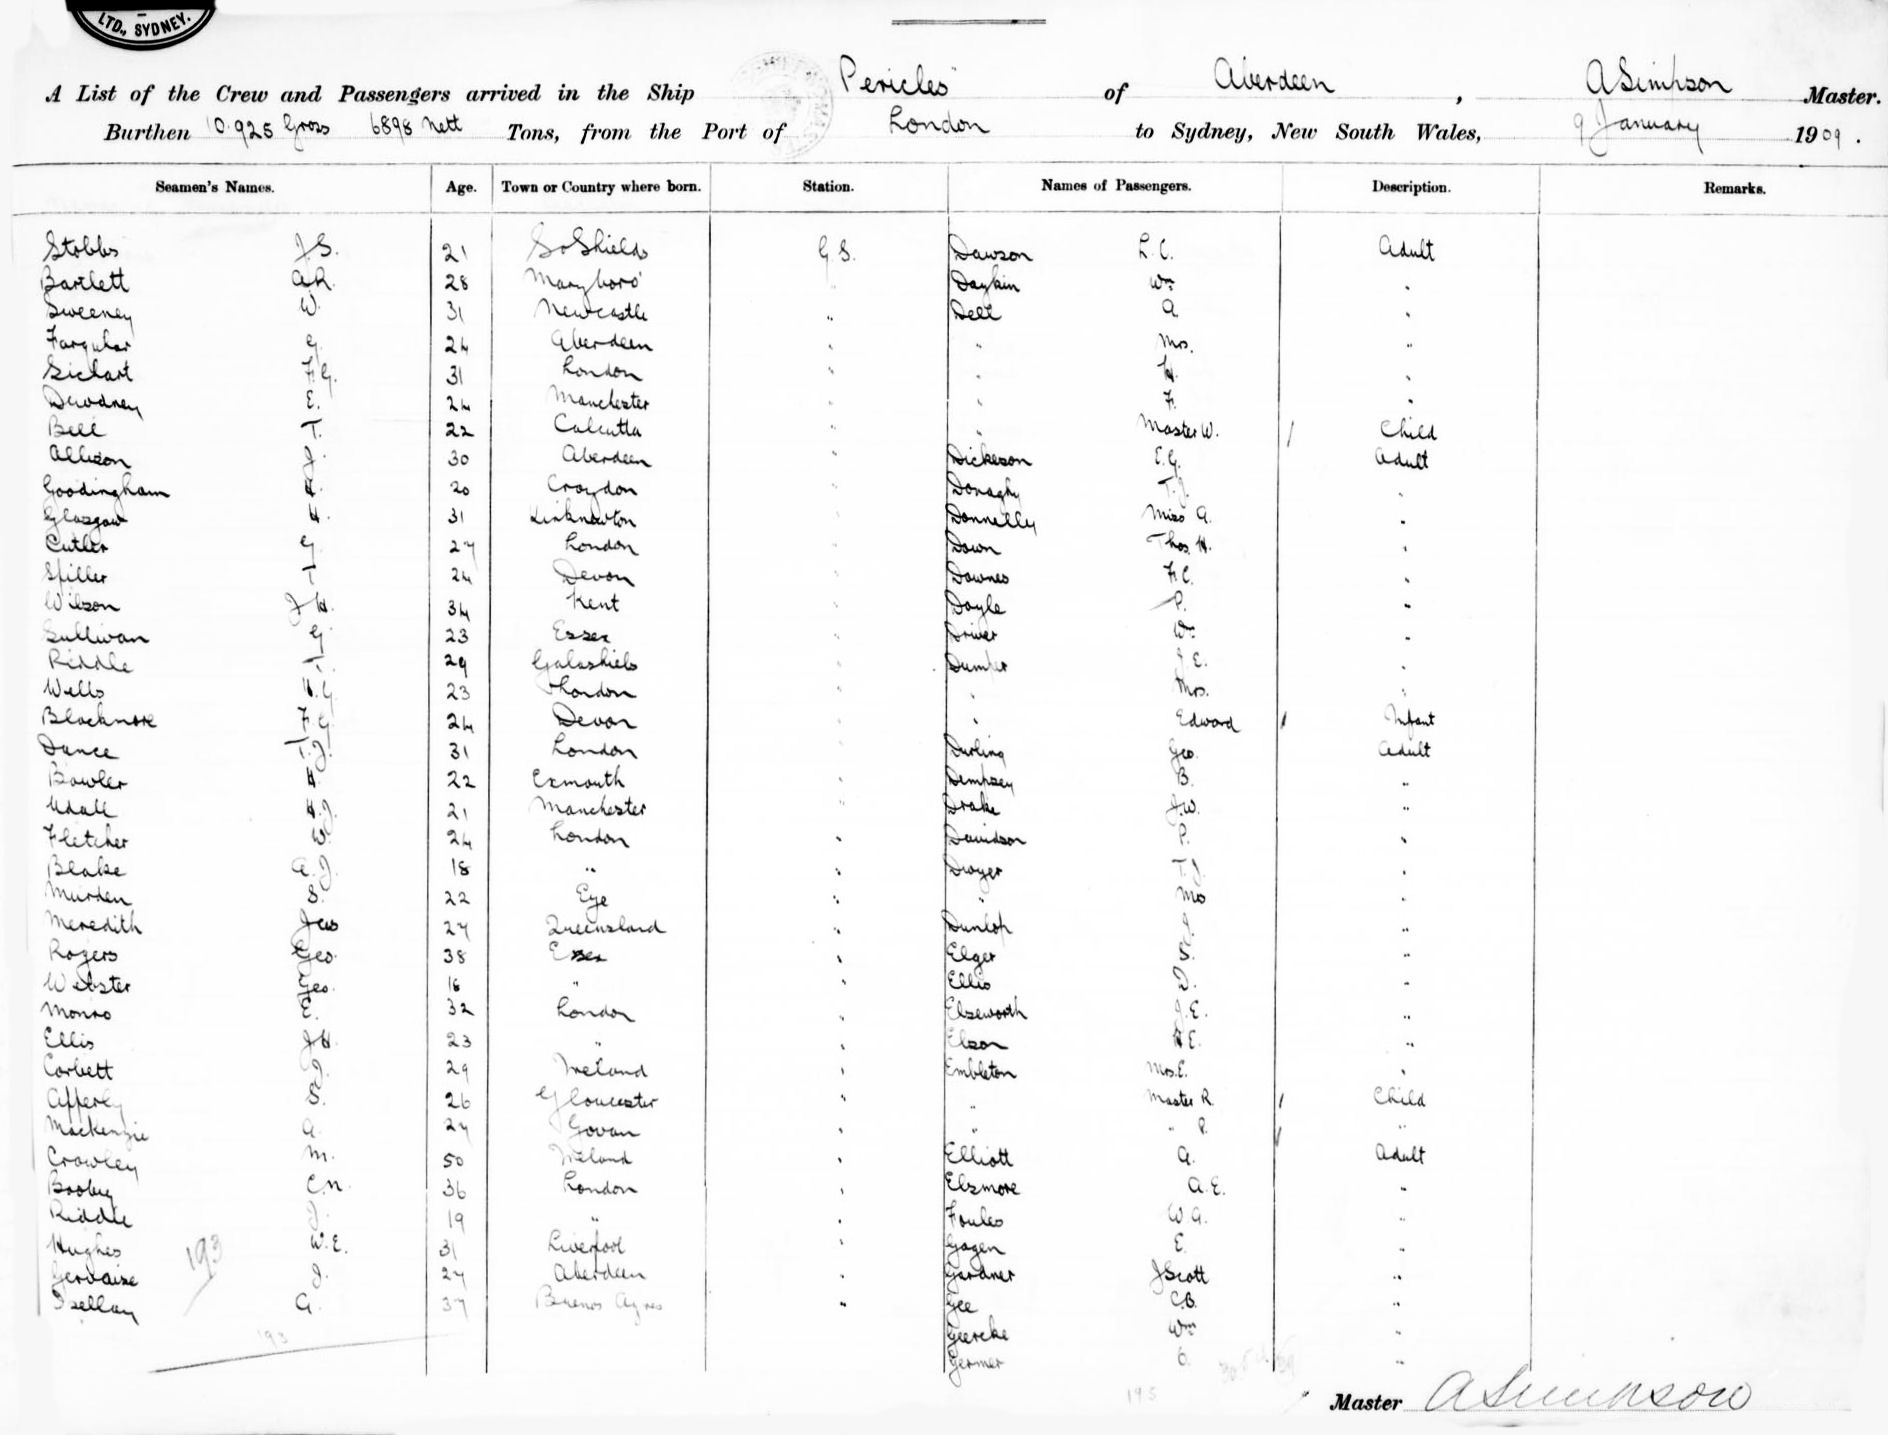 LTD., SYDNEY.
A List of the Crew and Passengers arrived in the Ship "Pericles" of Aberdeen, A Simpson Master.
Burthen 10.925 Gross 6898 Nett Tons, from the Port of London to Sydney, New South Wales, 9 January 1909.
Seamen's Names. Age. Town or Country where born. Station. Names of Passengers. Description. Remarks.
Stobbs J.S. 21 So Shields G.S. Dawson L.C. Adult
Bartlett A.R. 28 Maryboro' " Daykin Wm "
Sweeney W. 31 Newcastle " Dell A "
Farquhar G. 24 Aberdeen " " Mrs. "
Sichart F.G. 31 London " " H. "
Dewdney E. 24 Manchester " " F. "
Bell T. 22 Calcutta " " Master W. / Child
Allison J. 30 Aberdeen " Dickeson E.G. Adult
Goodingham H. 20 Croydon " Donaghy T.J. "
Glasgow H. 31 Kirknewton " Donnelly Miss A. "
Cutler G. 27 London " Down Thos. H. "
Spiller T 24 Devon " Downes F.C. "
Wilson J H. 34 Kent " Doyle P. "
Sullivan G. 23 Essex " Driver Wm "
Riddle T. 29 Galashiels " Dumper J.E. "
Wells H.G. 23 London " " Mrs. "
Blackmore F.G. 24 Devon " " Edward / Infant
Dance T.J. 31 London " Durling Geo. Adult
Bowler H. 22 Exmouth " Dempsey B. "
Udall H.J. 21 Manchester " Drake J.W. "
Fletcher W. 24 London " Davidson P. "
Blake A.J. 18 " " Dwyer T.J. "
Murden S. 22 Eye " " Mrs "
Meredith Jas 27 Queensland " Dunlop J. "
Rogers Geo. 38 Essex " Elger S. "
Webster Geo. 18 " " Ellis D. "
Monro E. 32 London " Elseworth J.E. "
Ellis J H. 23 " " Elson H E. "
Corbett J. 29 Ireland " Embleton Mrs. E. "
Apperly S. 26 Gloucester " " Master R. / Child
Mackenzie A. 27 Govan " " " P. / "
Crowley M. 50 Ireland " Elliott A. Adult
Boobey C.N. 36 London " Elsmore A.E. "
Riddle J. 19 " " Foules W A. "
Hughes W.E. 31 Liverpool " Gagen E. "
Gervaise J. 27 Aberdeen " Gardner J Scott "
A. 37 Buenos Ayres " Gee C.B. "
193
Geercke Wm "
193
Germer "
195
Master A Simpson